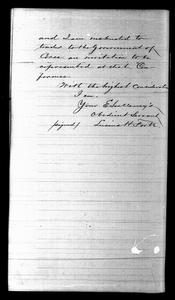 and I am instructed to
tender to the Government of
an invitation to be
represented at that Con-
ference.
With the highest consideration
I am
Your Excellency's
Obedient Servant
(signed)